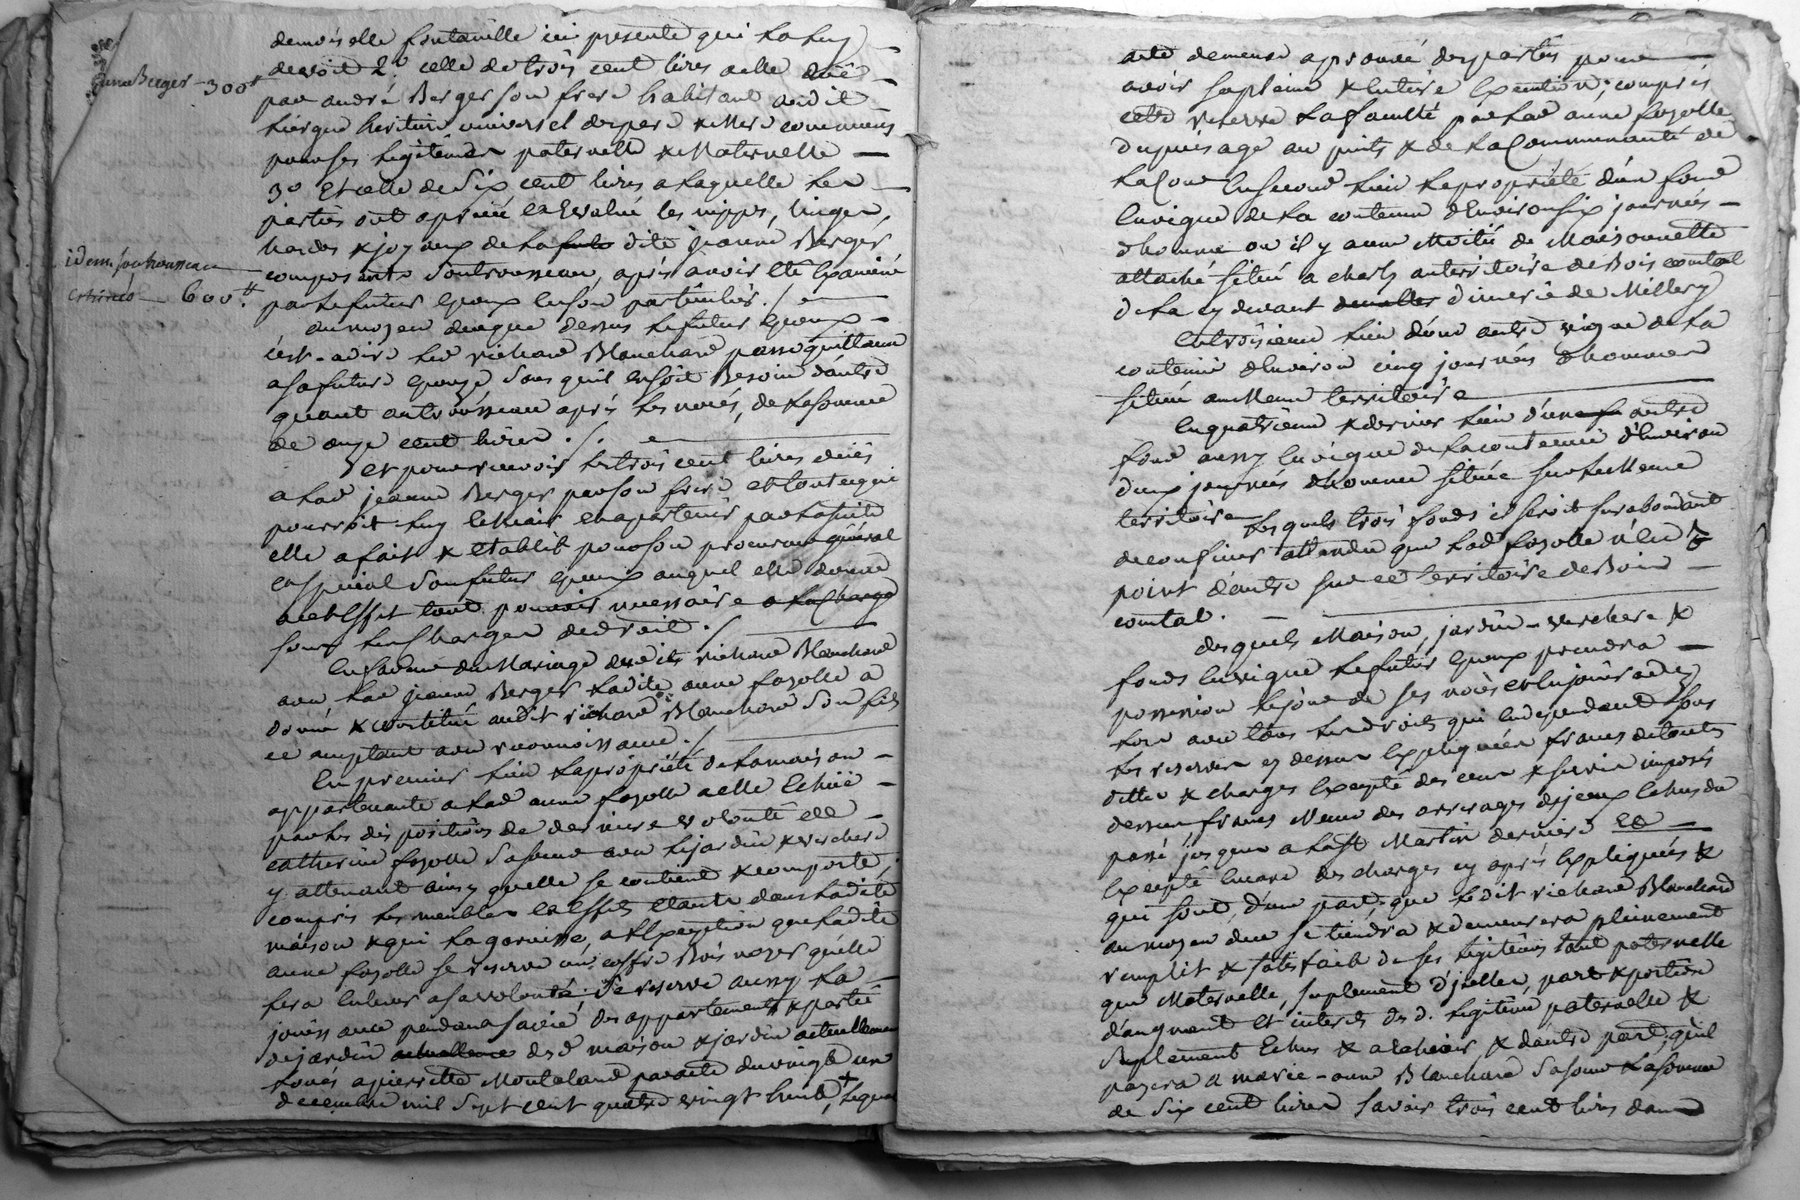 demoiselle fontanille ici presente qui la luy
devoit 2.º celle de trois cent livres a elle düe
par andré Berger son frere habitant audit
heritier universel de pere & Mere communs
pour ses legitimes paternelle & Maternelle
3º Et celle de Six cent livres a laquelle les
parties ont aprecié et Evalué les nipes, linges,
hardes & joyaux de la dite jeanne Berger
composants Son trousseau, apres avoir eté Examiné
par le futur Epoux en son particulier ./.
jeanne Berger 300ᵗᵗ
idem. son trousseau
Estimé 600ᵗᵗ
au moyen de ce que dessus le futur Epoux
c'est-adire led richard Blanchard passe quittance
a sa future Epouze Sans quil en soit Besoin d'autre
quant au trousseau après les noces, de la somme
de onze cent livres ./.
Et pour recevoir les trois cent livres dües
a lad jeanne Berger par son frere et tout ce qui
pourroit luy echoir et apartenir par la suite
elle a fait & etablit pour son procureur général
et special Son futur Epoux auquel elle donne
a cet Effet tout pouvoir necessaire a la charge
sous les Charges de droit ./.
En faveur du Mariage desdits richard Blanchard
avec lad jeanne Berger ladite anne fazolle a
donné & constitué audit richard Blanchard Son fils
ce acceptant avec reconnoissance ./.
En premier lieu la propriété de la maison
appartenante a lad anne fazolle a elle Echüe
par les dispositions de derniere volonté de
catherine fazolle Sa soeur avec le jardin & verchere
y attenant ainsy quelle se contient & comporte,
compris les meubles et effets etants dans ladite
maison & qui la garnisse, a l'Exception que ladite
anne fazolle se reserve un coffre Bois noyer qu'elle
fera enlever a sa volonté, Se reserve aussy la
jouissance pendant sa vie, des appartements & partie
de jardin desd maison & jardin actuellement
loués a pierrette Montaland par acte du vingt un
decembre mil Sept cent quatre vingt huit, lequel
acte demeure aprouvé des parties pour
avoir sa pleine & Entiere Execution; compris
cette reserve la faculté par lad anne fazolle
du puisage au puits & de la Communauté de
la Cour En second lieu la propriété d'un fond
En vigne de la contenue d'Environ six journées
d'homme ou il y a une Moitié de Maisonnette
attachée situé a charly au territoire de Bois comtal
de la cy devant dimerie de Millery
Et troisieme lieu d'une autre vigne de la
contenüe d'Environ cinq journées d'hommes
située au Meme territoire
En quatrieme & dernier lieu d'un autre
fond aussy En vigne de la contenue d'Environ
deux journées d'homme située sur le Meme
territoire Lesquels trois fonds il seroit surabondant
de confiner attendu que lad fazolle n'En a
point d'autre sur ce territoire de Bois
comtal.
desquels Maison, jardin - verchere &
fonds En vigne le futur Epoux prendra
possession le jour de ses noces et En jouira dez
lors avec tous les droits qui En dependent Sous
les reserves cy dessus Expliquées francs de toutes
dettes & charges Excepté des cens & servis imposés
dessus, francs Meme des arrerages d'iceux Echus du
passé jusques a la St Martin derniere Et
Excepté Encore des charges cy après Expliquées &
qui sont, d'une part, que ledit richard Blanchard
au moyen de ce se tiendra & demeurera pleinement
remplit & satisfait de ses legitimes tant paternelle
que Maternelle, suplement d'jcelles, part & portion
d'augment et interets desd. legitime paternelle &
Suplement Echus & a echoir, & d'autre part, qu'il
payera a marie-anne Blanchard Sa soeur la somme
de Six cent livres savoir trois cent livres dans